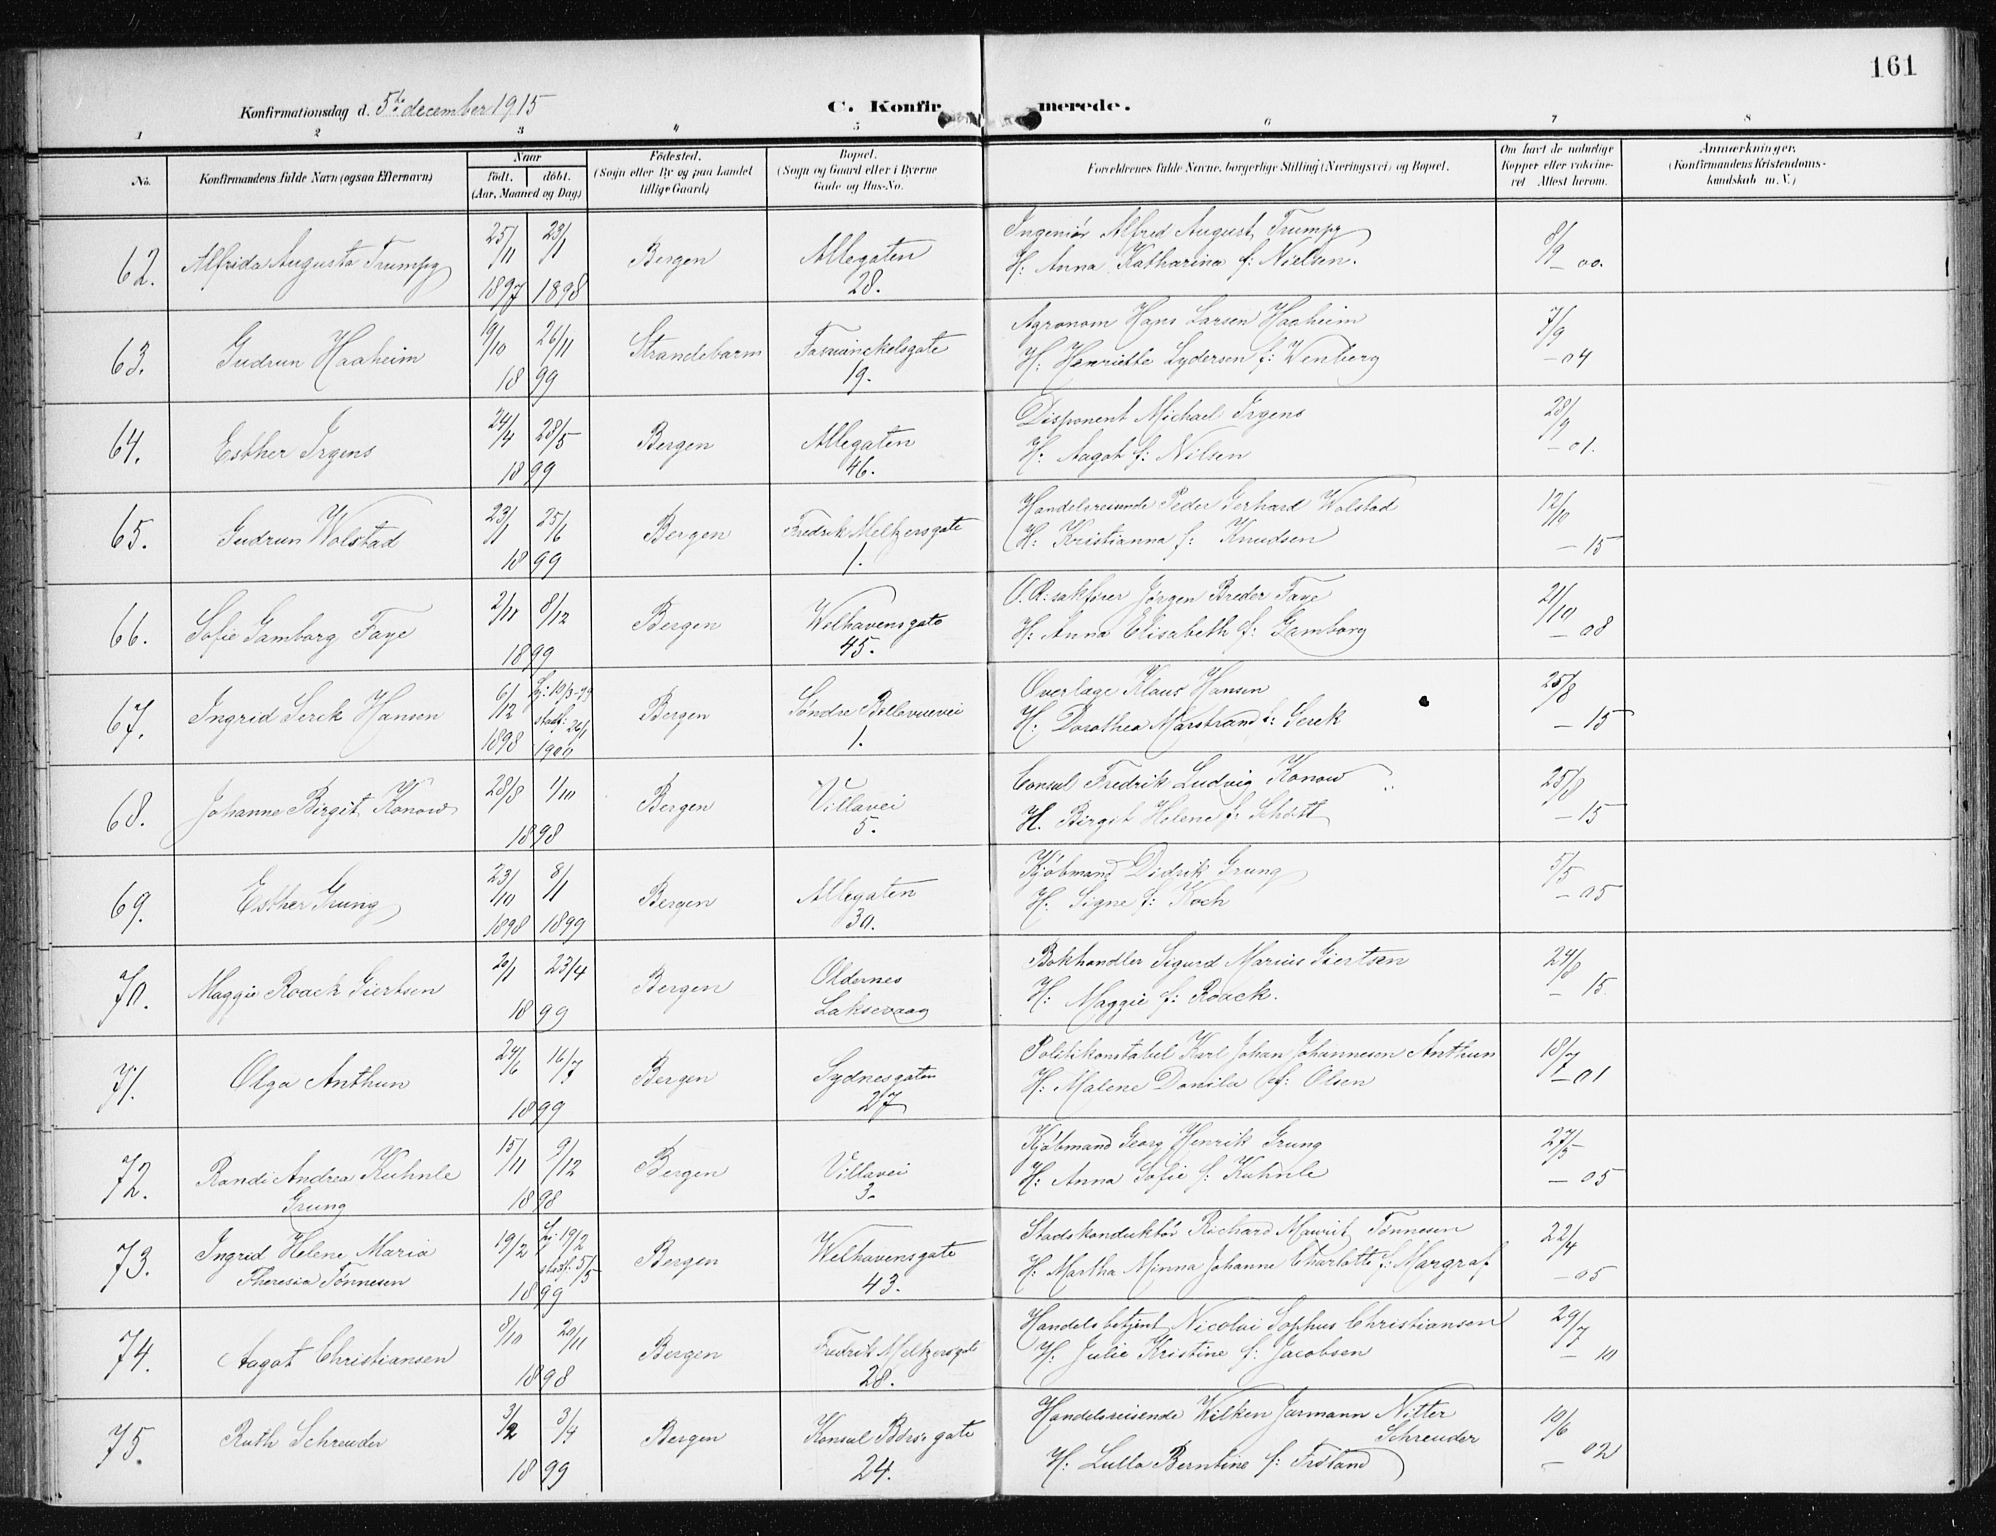 161
Konfirmationsdag d. 5te december 1915
C. Konfir merede.
1 2 3 4 5 6 7 8
No. Konfirmandens fulde Navn (ogsaa Efternavn) Naar født. døbt. (Aar, Maaned og Dag) Fødested. (Sogn eller By og paa Landet tillige Gaard) Bopæl. (Sogn og Gaard eller i Byerne Gade og Hus-No. Forældrenes fulde Navne, borgerlige Stilling (Næringsvei) og Bopæl. Om havt de naturlige Kopper eller vakcineret Attest herom. Anmærkninger. (Konfirmandens Kristendomskundskab m. V.)
62. Alfrida Augusta Trumpy 25/11 1897 23/1 1898 Bergen Allegaten 28. Ingeniør Alfred August Trumpy
H: Anna Katharina f: Nielsen. 8/9 - 00.
63. Gudrun Haaheim 19/10 26/11 1899 Strandebarm 19. Agronom Hans Larsen Haaheim
H: Henriette Lydersen f: Wenberg 7/9 - 04
64. Esther Irgens 24/4 28/5 1899 Bergen Allegaten 46. Disponent Michael Irgens
H: Aagot f: Nilsen 28/9 - 01.
65. Gudrun Wolstad 23/1 25/6 1899 Bergen Fredrik Meltzersgate 1. Handelsreisende Peder Gerhard Wolstad
H: Kristianna f: Knudsen 12/10 - 15
66. Sofie Gamborg Faye 2/11 8/12 1899 Bergen Welhavensgate 45. O.R.sakfører Jørgen Breder Faye
H: Anna Elisabeth f: Gamborg 21/10 - 08
67. Ingrid Serck Hansen 6/12 1898 Bergen Søndre Bellevuevei 1. Overlæge Klaus Hansen
H: Dorothea Marstrand f: Serck 25/8 - 15
68. Johanne Birgit Konow 28/8 1/10 1898 Bergen Villavei 5. Consul Fredrik Ludvig Konow
H. Birgit Helene f: Schøtt 25/8 - 15
69. Esther Grung 23/10 1898 8/1 1899 Bergen Allegaten 30. Kjøbmand Didrik Grung
H: Signe f: Koch 5/5 - 05
70. Maggie Roack Giertsen 20/1 23/4 1899 Bergen Oldernes Laksevaag Bokhandler Sigurd Marius Giertsen
H: Maggie f: Roack. 24/8 - 15.
71. Olga Anthun 24/6 16/7 1899 Bergen Sydnesgaten 27 Politikonstabel Karl Johan Johannesen Anthun
H: Malene Danila f: Olsen 18/7 - 01
72. Randi Andrea Kuhnle Grung 15/11 9/12 1898 Bergen Villavei 3. Kjøbmand Georg Henrik Grung
H: Anna Sofie f: Kuhnle 27/5 - 05
73. Ingrid Helene Maria Theresia Tønnesen 19/2 Hj: 19/2 stadf: 5/5 1899 Bergen Welhavensgate 43. Stadskonduktør Richard Tønnesen
H: Martha Minna Johanne Charlotte f: Margraf 22/4 - 05
74. Aagot Christiansen 8/10 20/11 1898 Bergen Fredrik Meltzersgate 28. Handelsbetjent Nicolai Sophus Christiansen
H: Julie Kristine f: Jacobsen 29/7 - 10
75. Ruth Schreuder 3/2 3/4 1899 Bergen Konsul Børs gate 24. Handelsreisende Wilken Jarmann Nitter Schreuder
H: Lulla Berntine f: Frøland 10/6 - 02